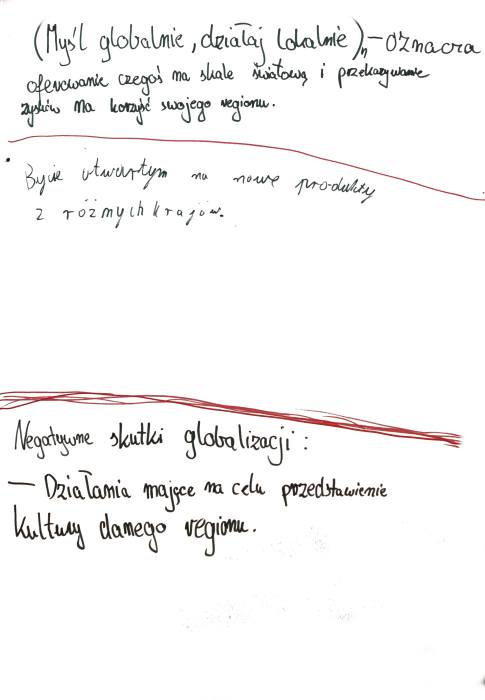 (Myśl globalnie, działaj lokalnie)" – oznacza
oferowanie czegoś na skale światową i przekazywanie
zysków na korzyść swojego regionu.
• Bycie otwartym na nowe produkty
z różnych krajów.
Negatywne skutki globalizacji:
– Działania mające na celu przedstawienie
kultury danego regionu.